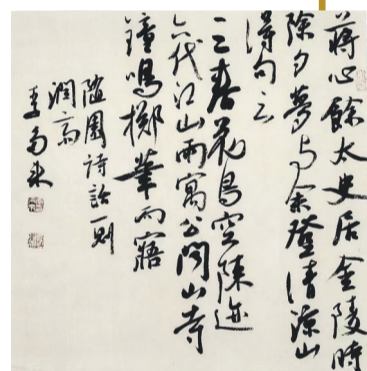 蒋心餘太史居金陵時
除夕夢与余登清涼山
得句云
三春花鳥空陳迹
六代江山兩寓公聞山寺
鐘鳴擲筆而寤
隨園詩話一則
李